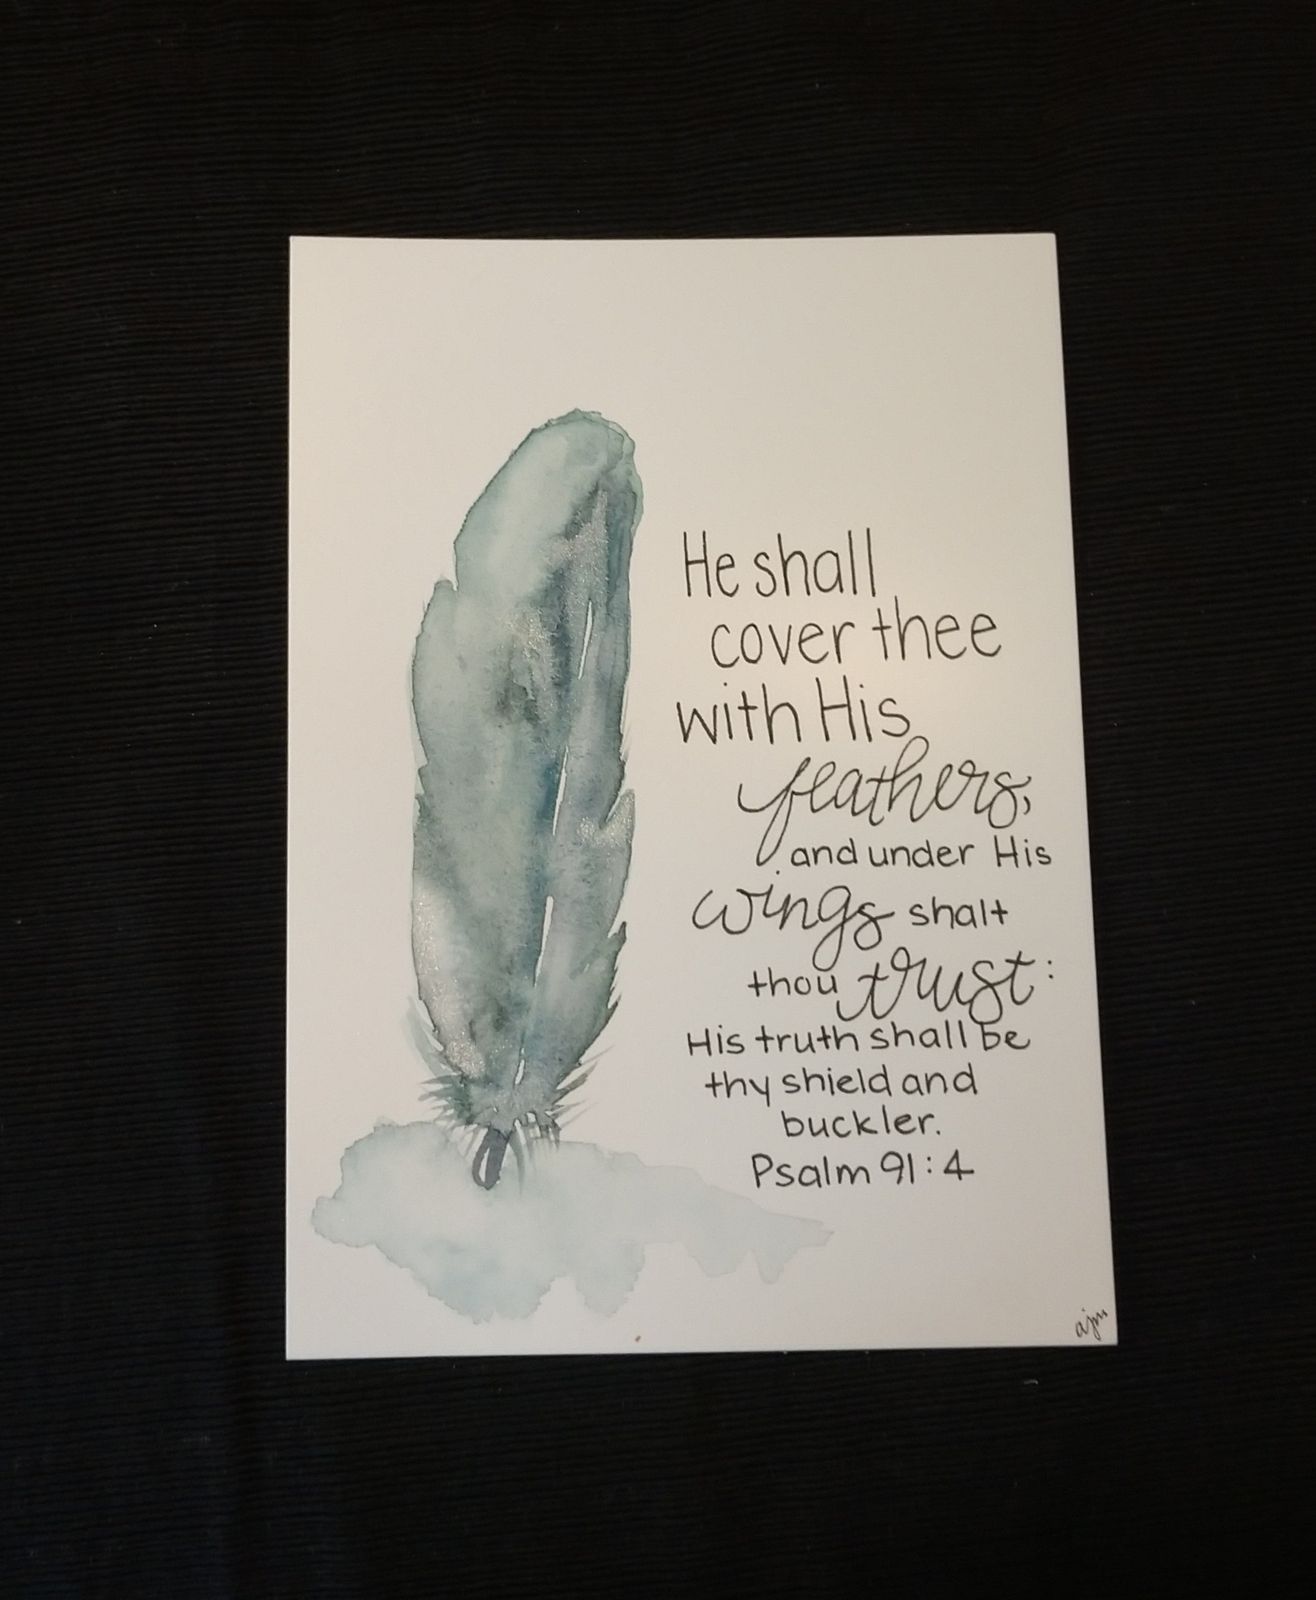 He shall
cover thee
with His
feathers,
and under His
wings shalt
thou trust:
His truth shall be
thy shield and
buckler.
Psalm 91:4
ajm